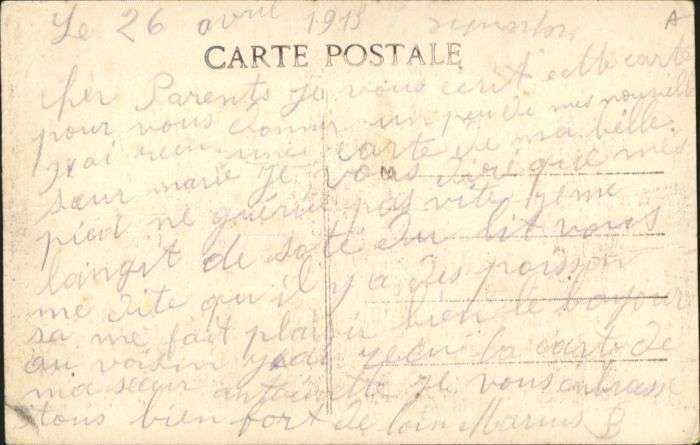 Le 26 avril 1915
A
CARTE POSTALE
Cher Parents je vous écrit cette carte
pour vous donner un peu de mes nouvelle
jai reçu une carte de ma belle
sœur marie je vous dire que mes
pied ne guérie pas vite je me
langit de soté du lit vous
me dite qu'il y a des poisson
sa me fait plaisir bien le bonjour
au voisin jedi reçu la carte de
ma sœur antoinette je vous embrasse
tous bien fort de loin Marius B